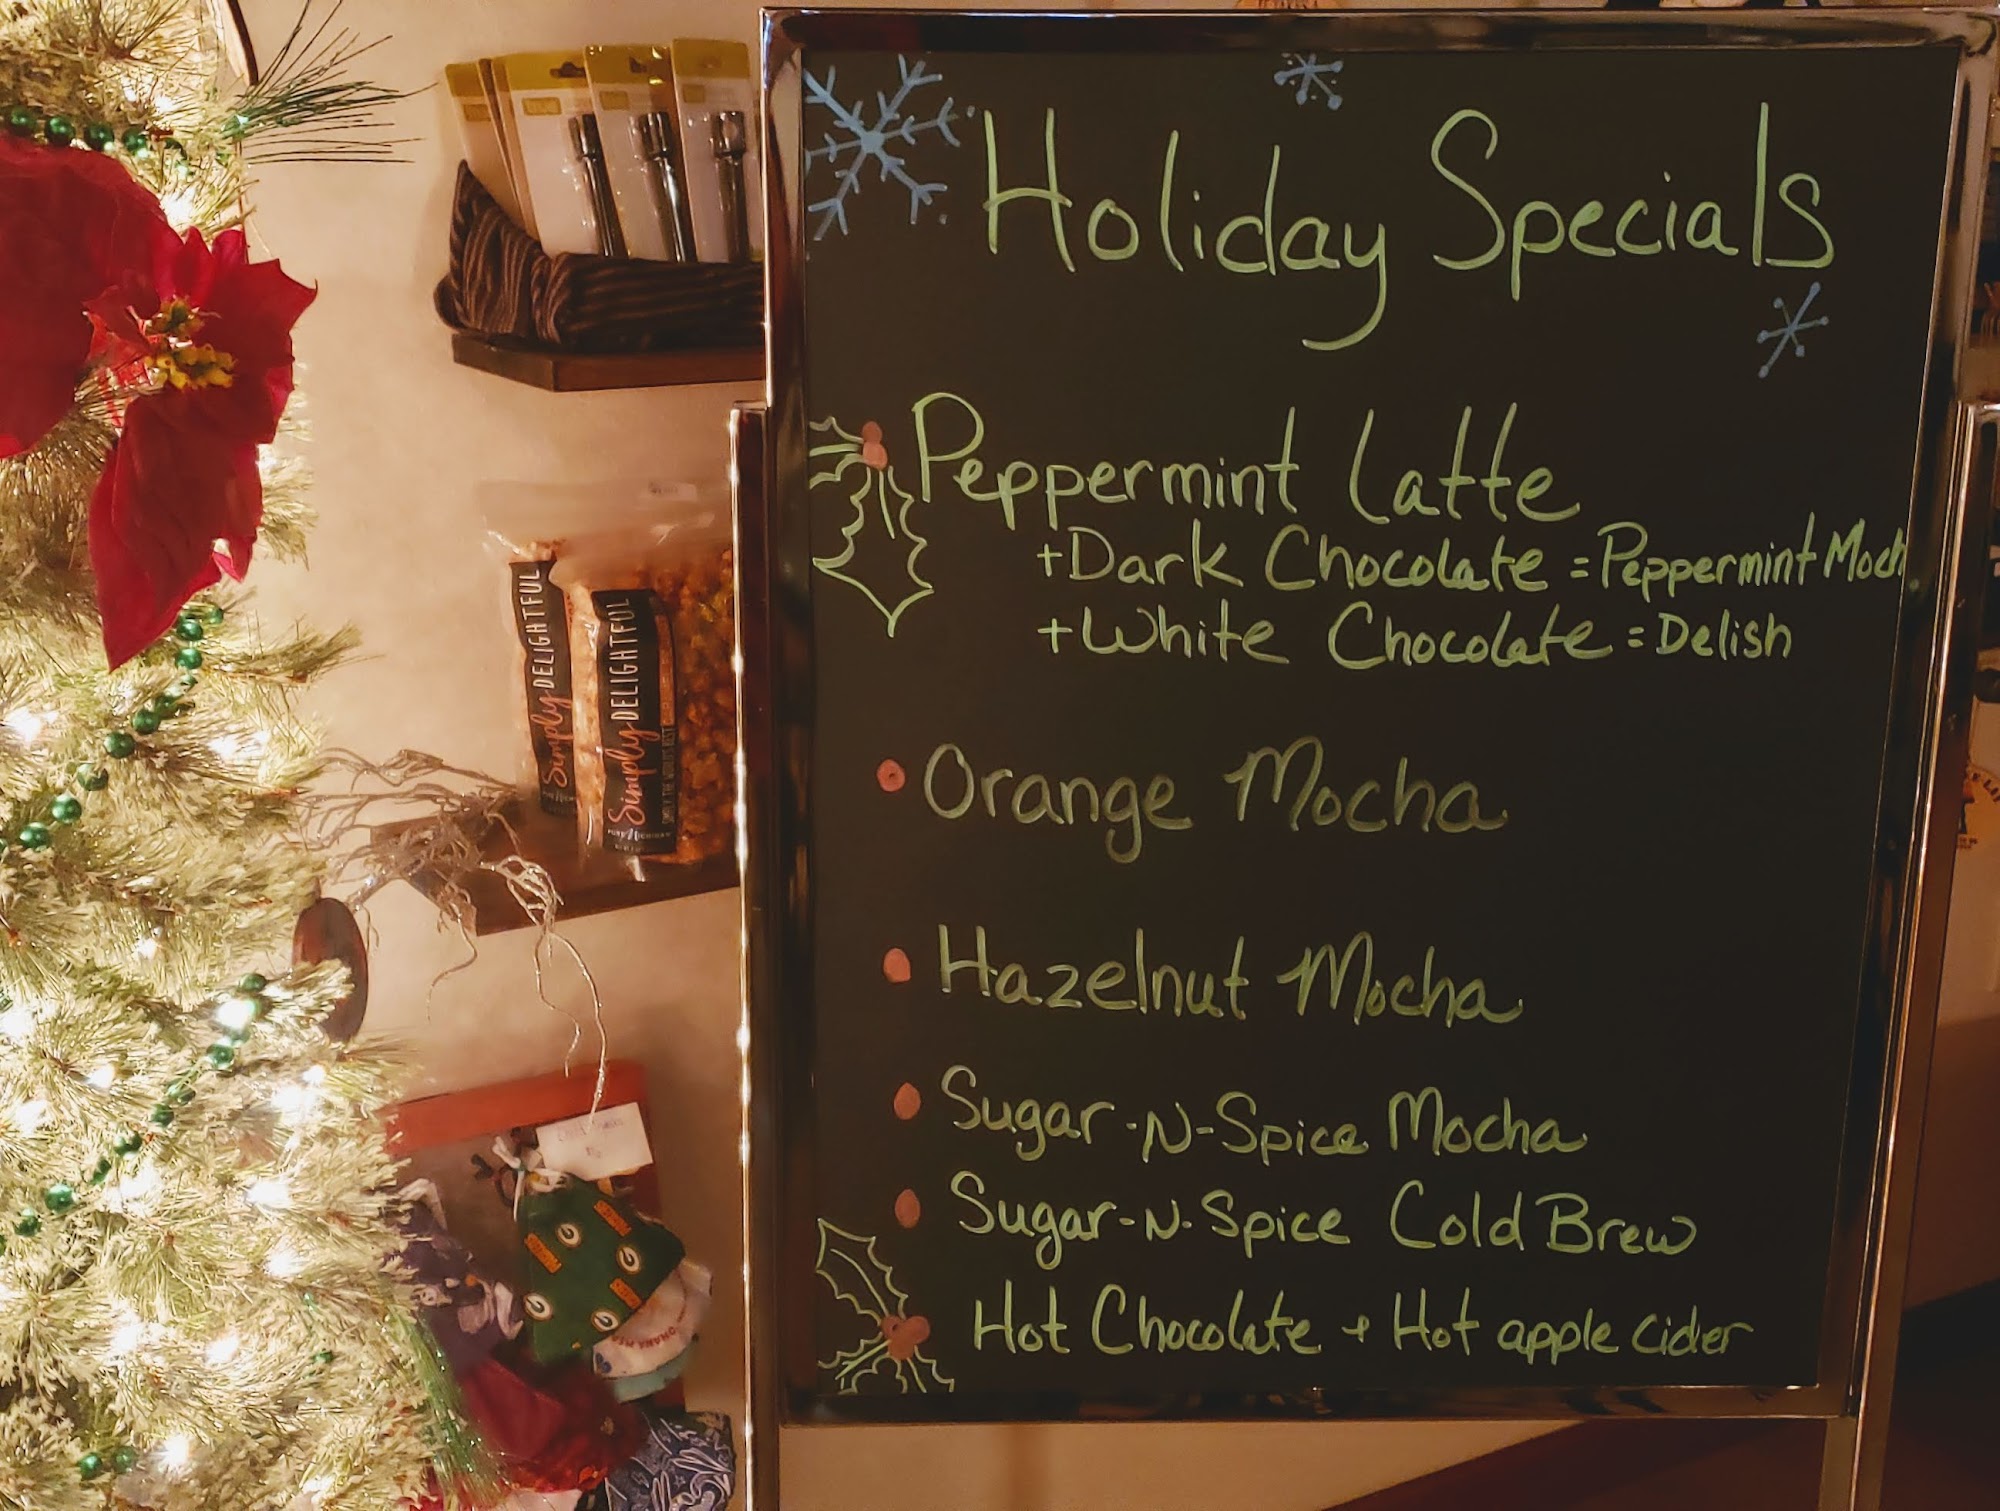 Holiday Specials
Peppermint Latte
+Dark Chocolate = Peppermint Moch
+White Chocolate = Delish
Orange Mocha
Hazelnut Mocha
Sugar-N-Spice Mocha
Sugar-N-Spice Cold Brew
Hot Chocolate + Hot apple cider
Simply DELIGHTFUL
Simply DELIGHTFUL